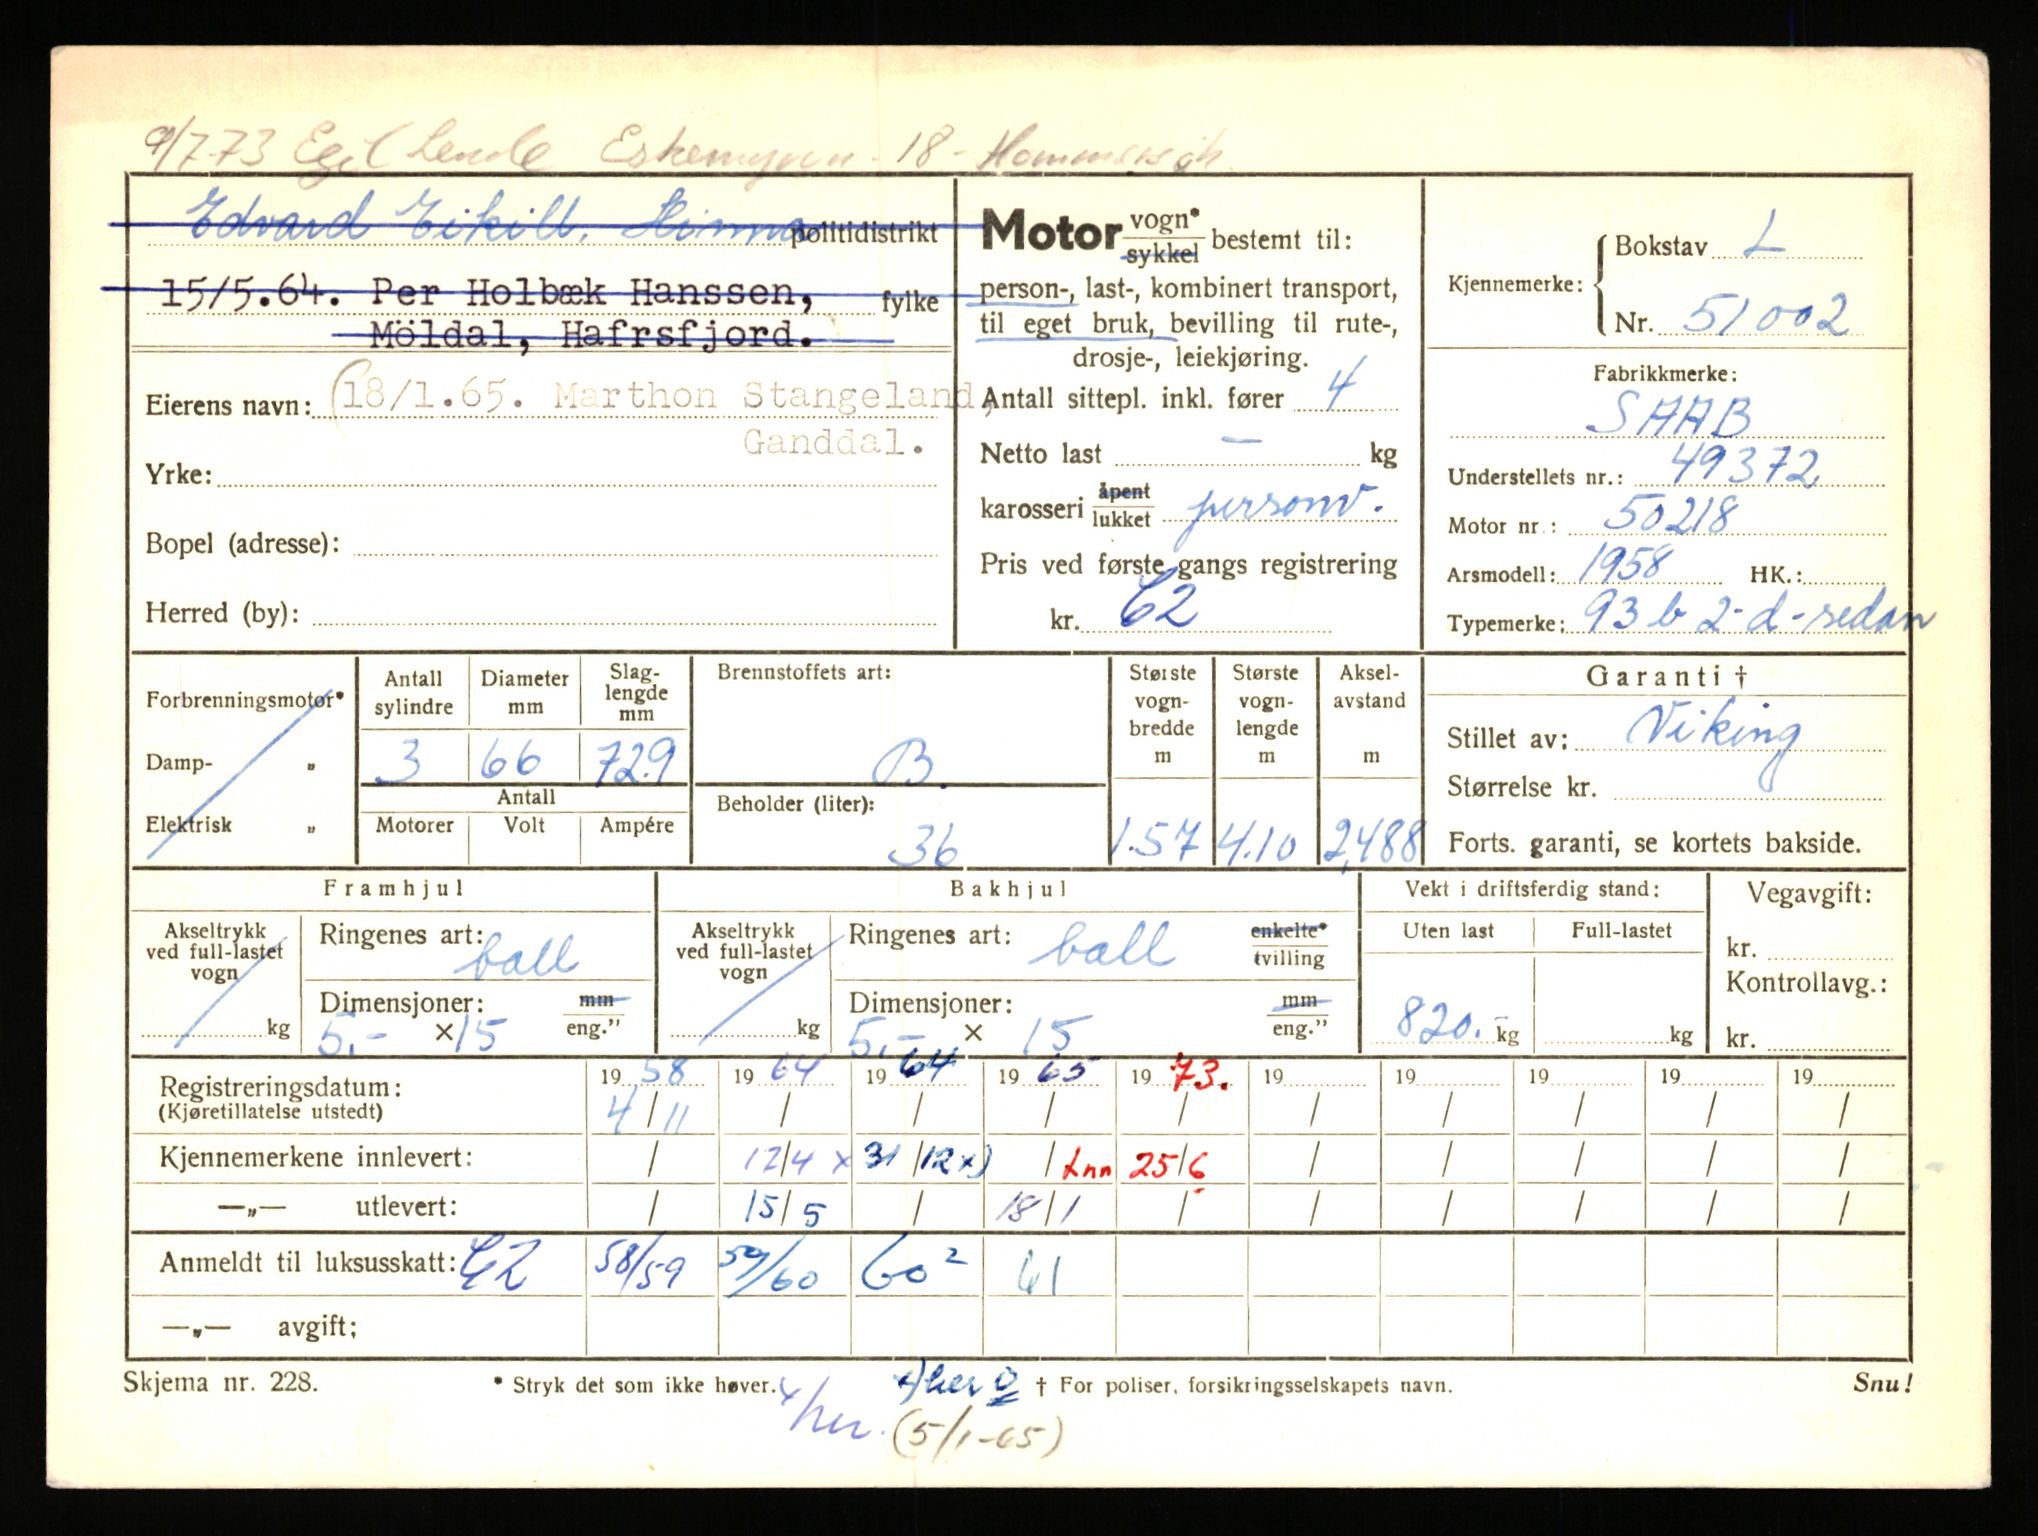 9/7-73 Egil Lende Eskemyren - 18 - Hommersåk
Edvard Eikill, Hinna politidistrikt
15/5.64. Per Holbæk Hanssen, fylke
Möldal, Hafrsfjord.
Eierens navn: (18/1.65. Marthon Stangeland,
Ganddal.
Yrke:
Bopel (adresse):
Herred (by):
Motor vogn* bestemt til:
sykkel
person-, last-, kombinert transport,
til eget bruk, bevilling til rute-,
drosje-, leiekjøring.
Antall sittepl. inkl. fører 4
Netto last — kg
karosseri åpent
lukket personv.
Pris ved første gangs registrering
kr. C2
Kjennemerke: Bokstav L
Nr. 51002
Fabrikkmerke:
SAAB
Understellets nr.: 49372
Motor nr.: 50218
Arsmodell: 1958 HK.:
Typemerke: 93 b 2-d-sedan
Forbrenningsmotor*
Damp- „
Elektrisk „
Antall sylindre Diameter mm Slag-lengde mm
3 66 72.9
Antall
Motorer Volt Ampére
Brennstoffets art:
B.
Beholder (liter):
36
Største vogn-bredde m
1.57
Største vogn-lengde m
4.10
Aksel-avstand m
2,488
Garanti †
Stillet av: Viking
Størrelse kr.
Forts. garanti, se kortets bakside.
Framhjul
Akseltrykk ved full-lastet vogn
kg
Ringenes art: ball
Dimensjoner: mm
5,- ×15 eng."
Bakhjul
Akseltrykk ved full-lastet vogn
kg
Ringenes art: ball enkelte*
tvilling
Dimensjoner: mm
5,- × 15 eng."
Vekt i driftsferdig stand:
Uten last Full-lastet
820.- kg kg
Vegavgift:
kr.
Kontrollavg.:
kr.
Registreringsdatum: 1958 1964 1964 1965 1973. 19 19 19 19 19
(Kjøretillatelse utstedt) 4/11 / / / / / / / / /
Kjennemerkene innlevert: / 12/4 x 31/12 x) / Lnn 25/6 / / / / /
—„— utlevert: / 15/5 / 18/1 / / / / / /
Anmeldt til luksusskatt: C2 58/59 59/60 60² 61
—„— avgift:
Skjema nr. 228. * Stryk det som ikke høver. x/her. x) her 0 † For poliser, forsikringsselskapets navn. Snu!
(5/1-65)